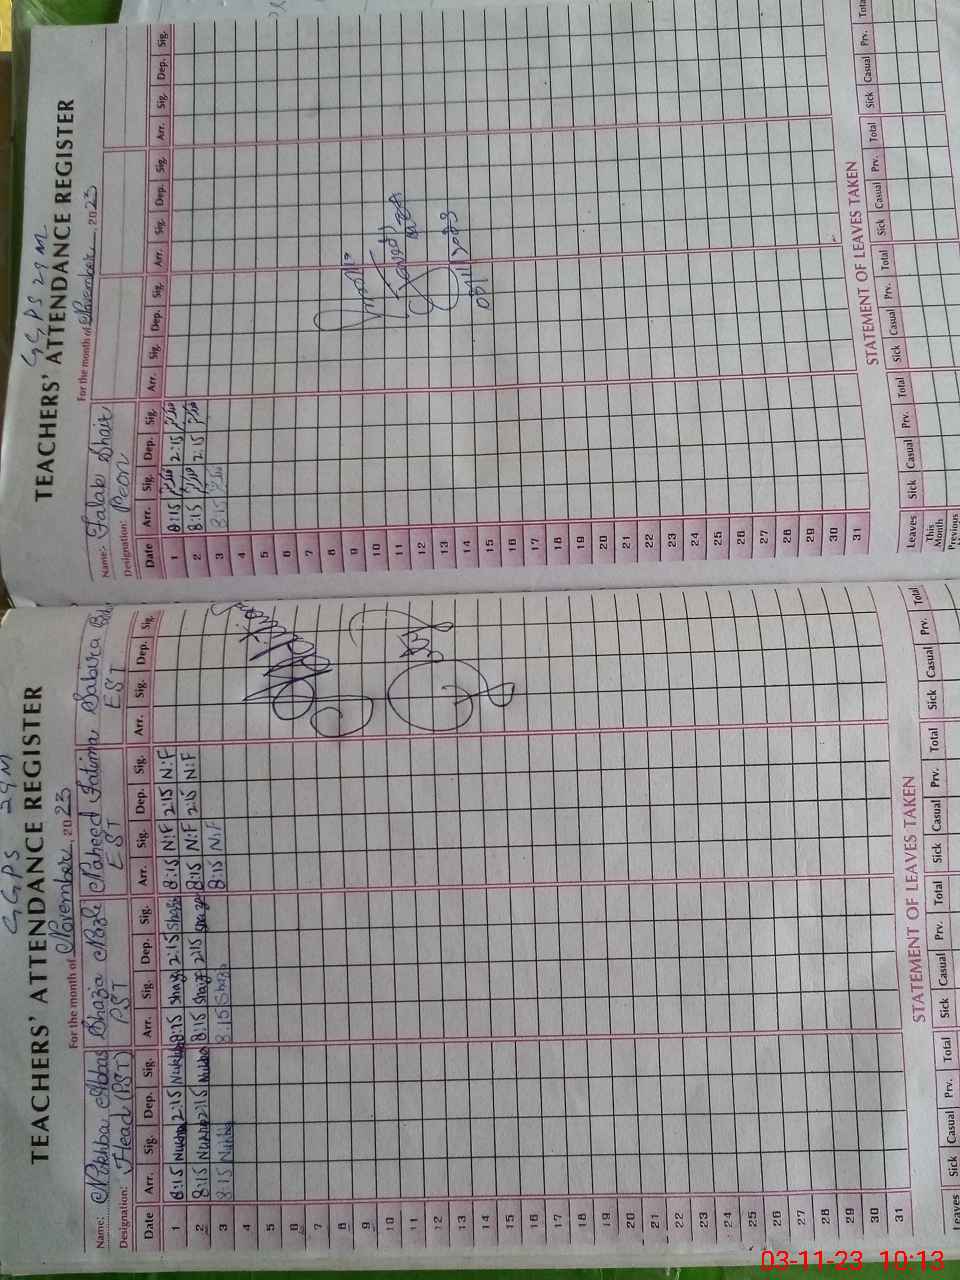 GGPS 29M
TEACHERS' ATTENDANCE REGISTER
For the month of November, 2023
Name: Nukhba Abbas Shazia Nazli Naheed Fatima Sabira
Designation: Head (PST) PST EST EST
Date Arr. Sig. Dep. Sig. Arr. Sig. Dep. Sig. Arr. Sig. Dep. Sig. Arr. Sig. Dep. Sig.
1 8:15 Nukhba 2:15 Nukhba 8:15 Shazi 2:15 Shazi 8:15 N:F 2:15 N:F
2 8:15 Nukhba 2:15 Nukhba 8:15 Shazi 2:15 Shazi 8:15 N:F 2:15 N:F
3 8:15 Nukhba 8:15 Shazi 8:15 N:F
4
5
6
7
8
9
10
11
12
13
14
15
16
17
18
19
20
21
22
23
24
25
26
27
28
29
30
31
STATEMENT OF LEAVES TAKEN
Leaves Sick Casual Prv. Total Sick Casual Prv. Total Sick Casual Prv. Total Sick Casual Prv. Total
GGPS 29M
TEACHERS' ATTENDANCE REGISTER
For the month of November, 2023
Name: Falak Shair
Designation: Peon
Date Arr. Sig. Dep. Sig. Arr. Sig. Dep. Sig. Arr. Sig. Dep. Sig. Arr. Sig. Dep. Sig.
1 8:15 2:15
2 8:15 2:15
3 8:15
4
5
6
7
8
9
10
11
12
13
14
15
16
17
18
19
20
21
22
23
24
25
26
27
28
29
30
31
03/11/2023
STATEMENT OF LEAVES TAKEN
Leaves Sick Casual Prv. Total Sick Casual Prv. Total Sick Casual Prv. Total Sick Casual Prv. Total
This Month
Previous
03-11-23 10:13